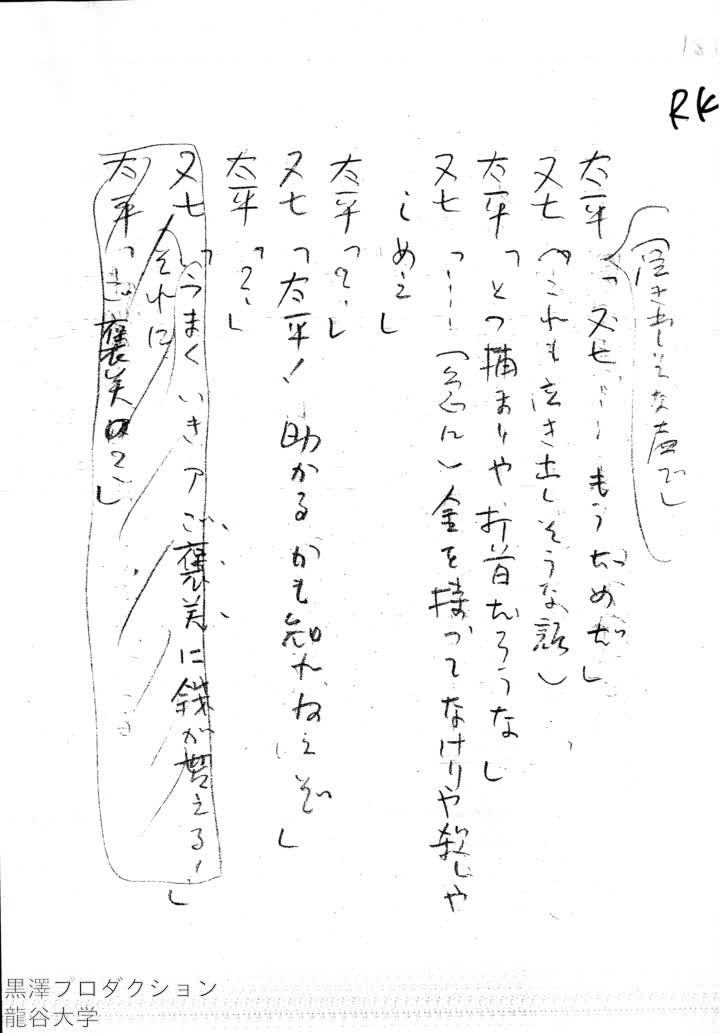 RK
(泣き出しそな声で)
太平「又七……もう だめだ」
又七(これも泣き出しそうな顔)
太平「とつ捕まりや、打首だろうな」
又七「……(急に)金を持つてなけりや殺しや
しめえ」
太平「?」
又七「太平! 助かるかも知れねえぞ」
太平「?」
又七「うまくいきアご褒美に銭が貰える!」
それに
太平「ご褒美の?」
黒澤プロダクション
龍谷大学